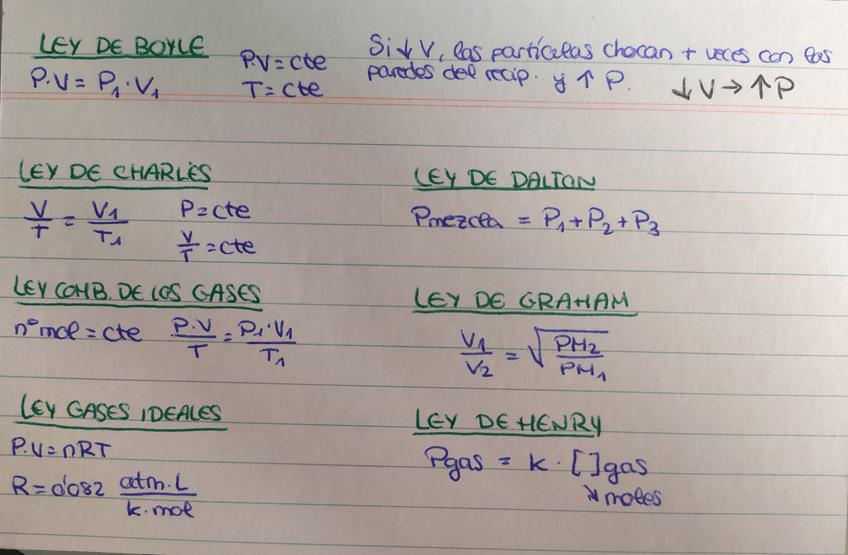 LEY DE BOYLE
P·V = P₁·V₁
PV = cte
T = cte
Si ↓ V, las partículas chocan + veces con las
paredes del recip. y ↑ P.
↓V → ↑P
LEY DE CHARLES
V/T = V₁/T₁
P = cte
V/T = cte
LEY DE DALTON
Pmezcla = P₁ + P₂ + P₃
LEY COMB. DE LOS GASES
nº mol = cte
P·V/T = P₁·V₁/T₁
LEY DE GRAHAM
V₁/V₂ = √PM₂/PM₁
LEY GASES IDEALES
P.V = nRT
R = 0'082 atm·L/k·mol
LEY DE HENRY
Pgas = k · [ ]gas
↘ moles